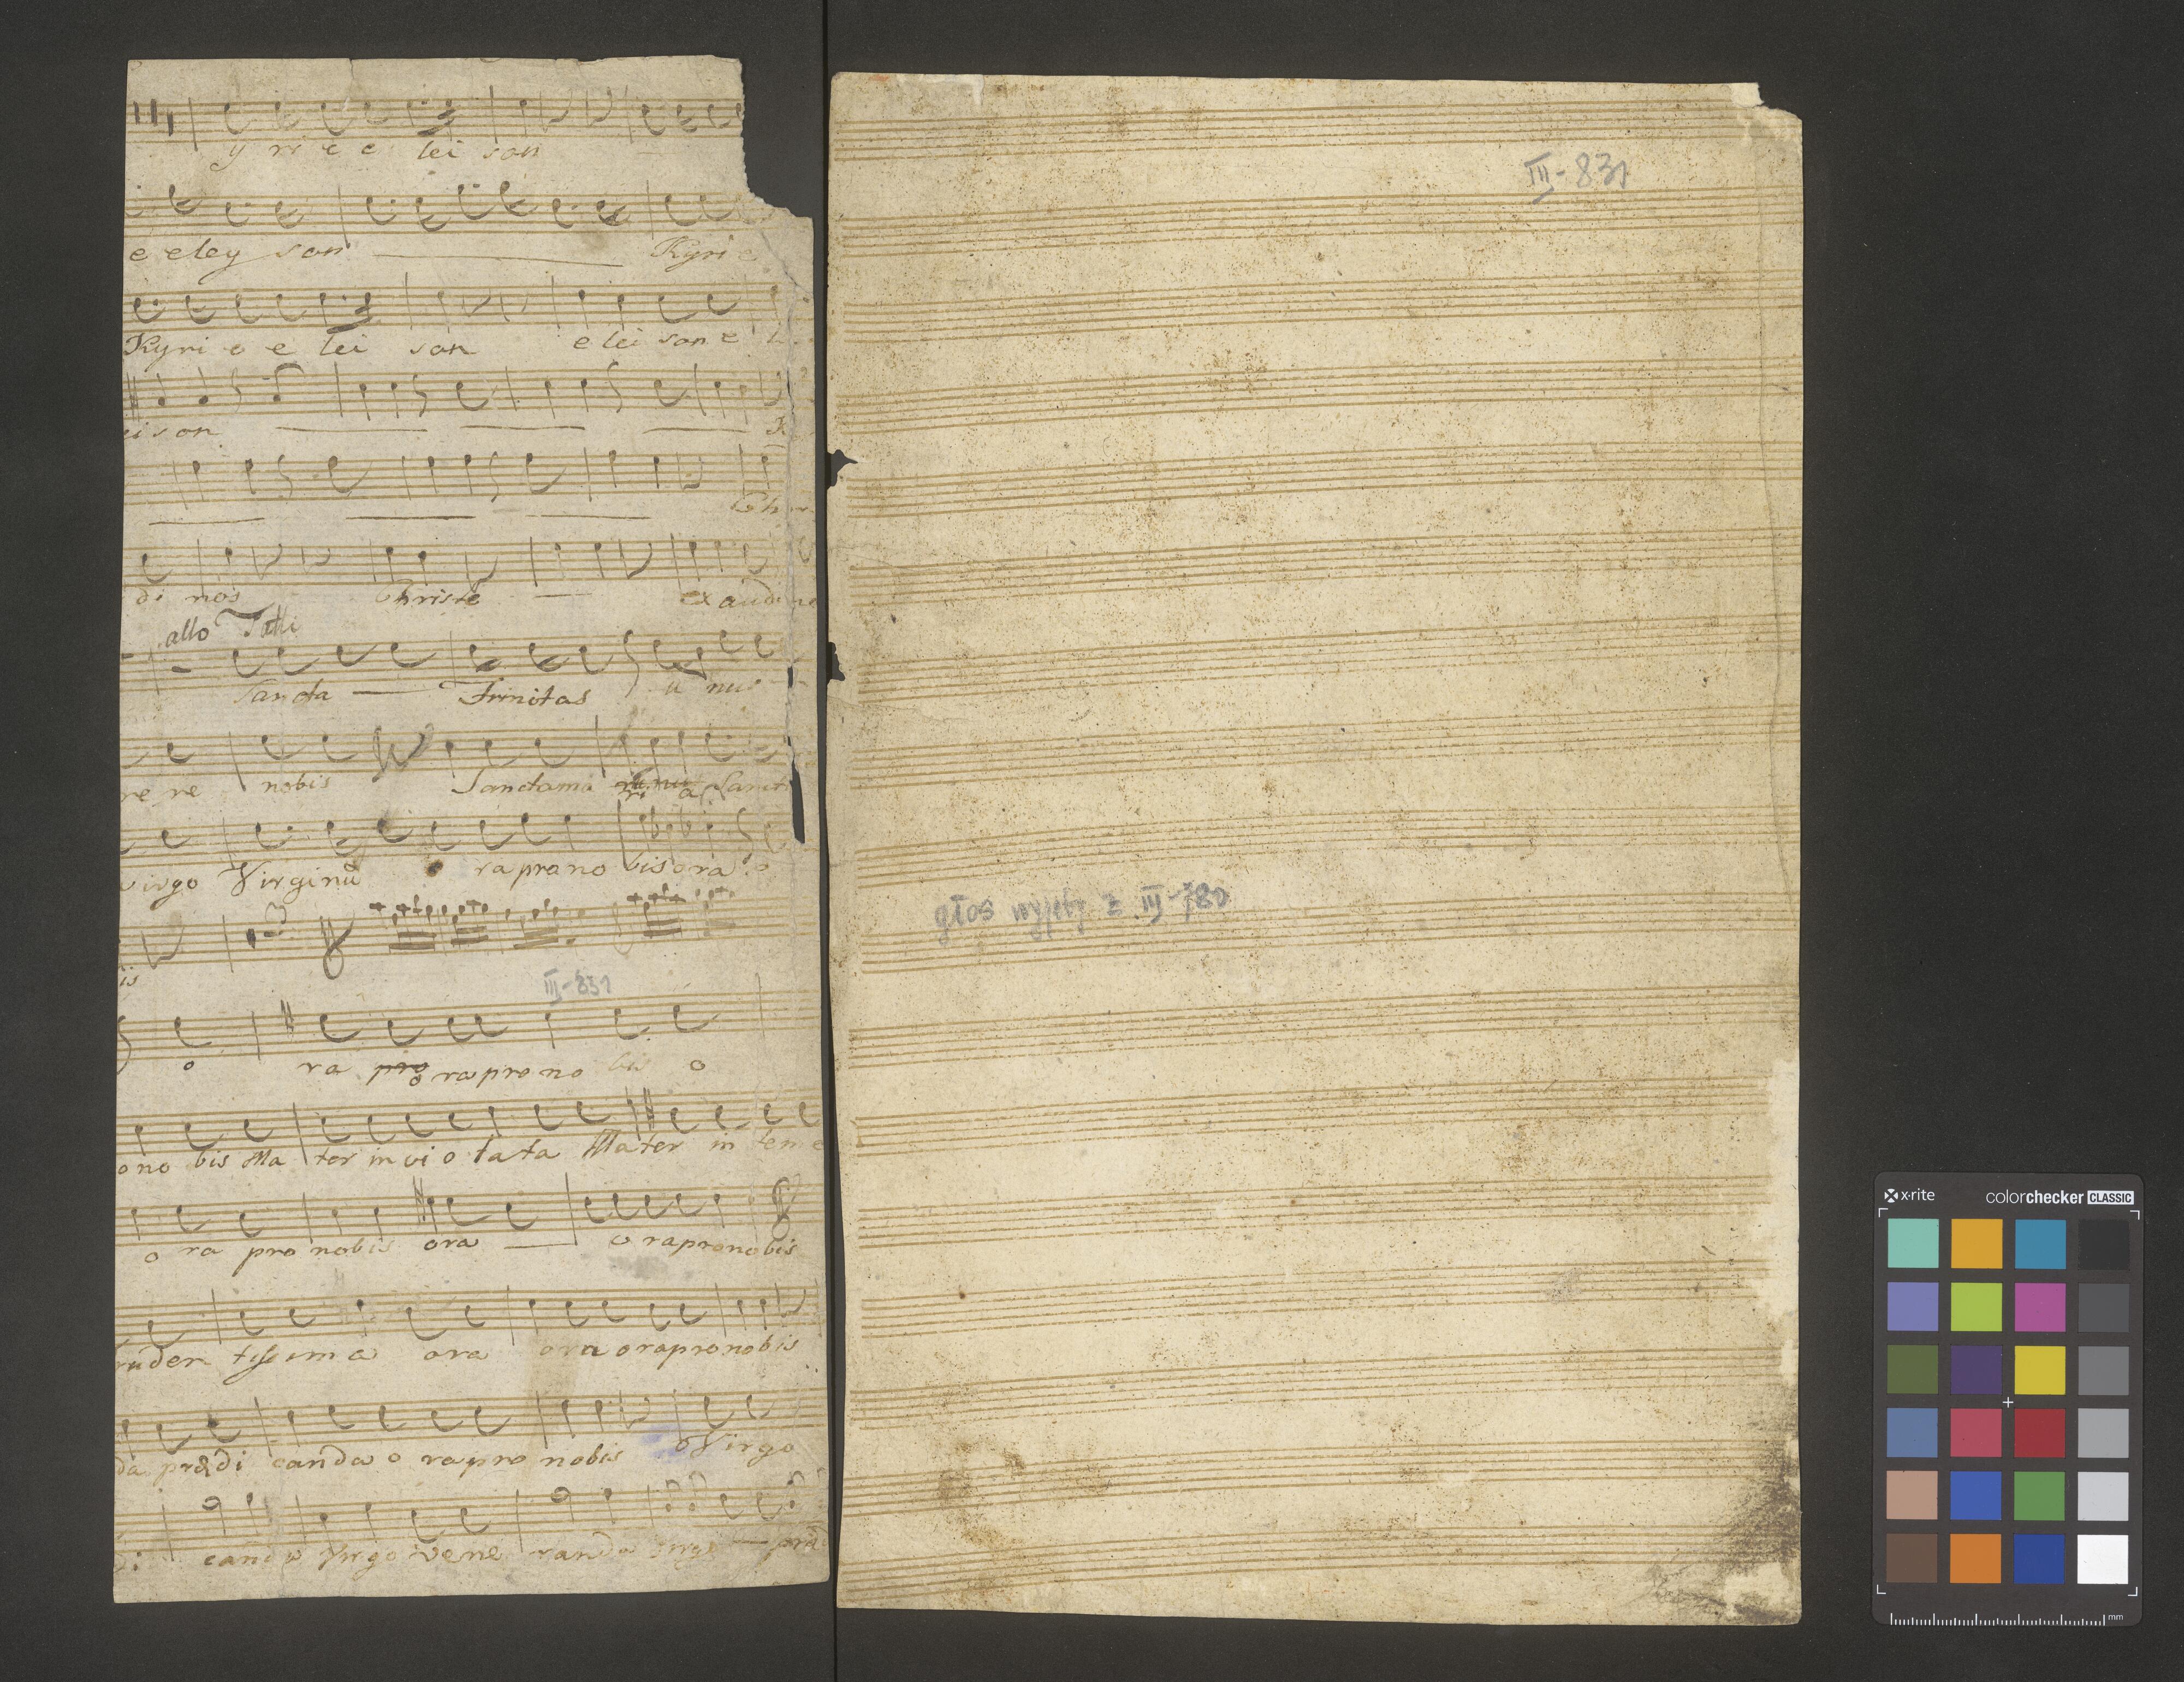 y ri e e lei son
e eley son Kyri e
Kyri e e lei son e lei son e
eison
Ch
di nos Christe exaudi
allo Tutti
Sancta Trinitas u nus
re re nobis Sancta ma ri a Sanct
virgo Virginū ra pro no bis ora o
is
III-831
o ra pro o ra pro no bis o
o no bis Ma ter in vi o la ta Mater in teme
o ra pro nobis ora o ra pro no bis
ruden tissima ora ora o ra pro nobis
da prædi canda o ra pro nobis Virgo
di: canda Virgo vene randa Virgo præ
III-831
głos wyjęty z III-780
x·rite colorchecker CLASSIC
mm